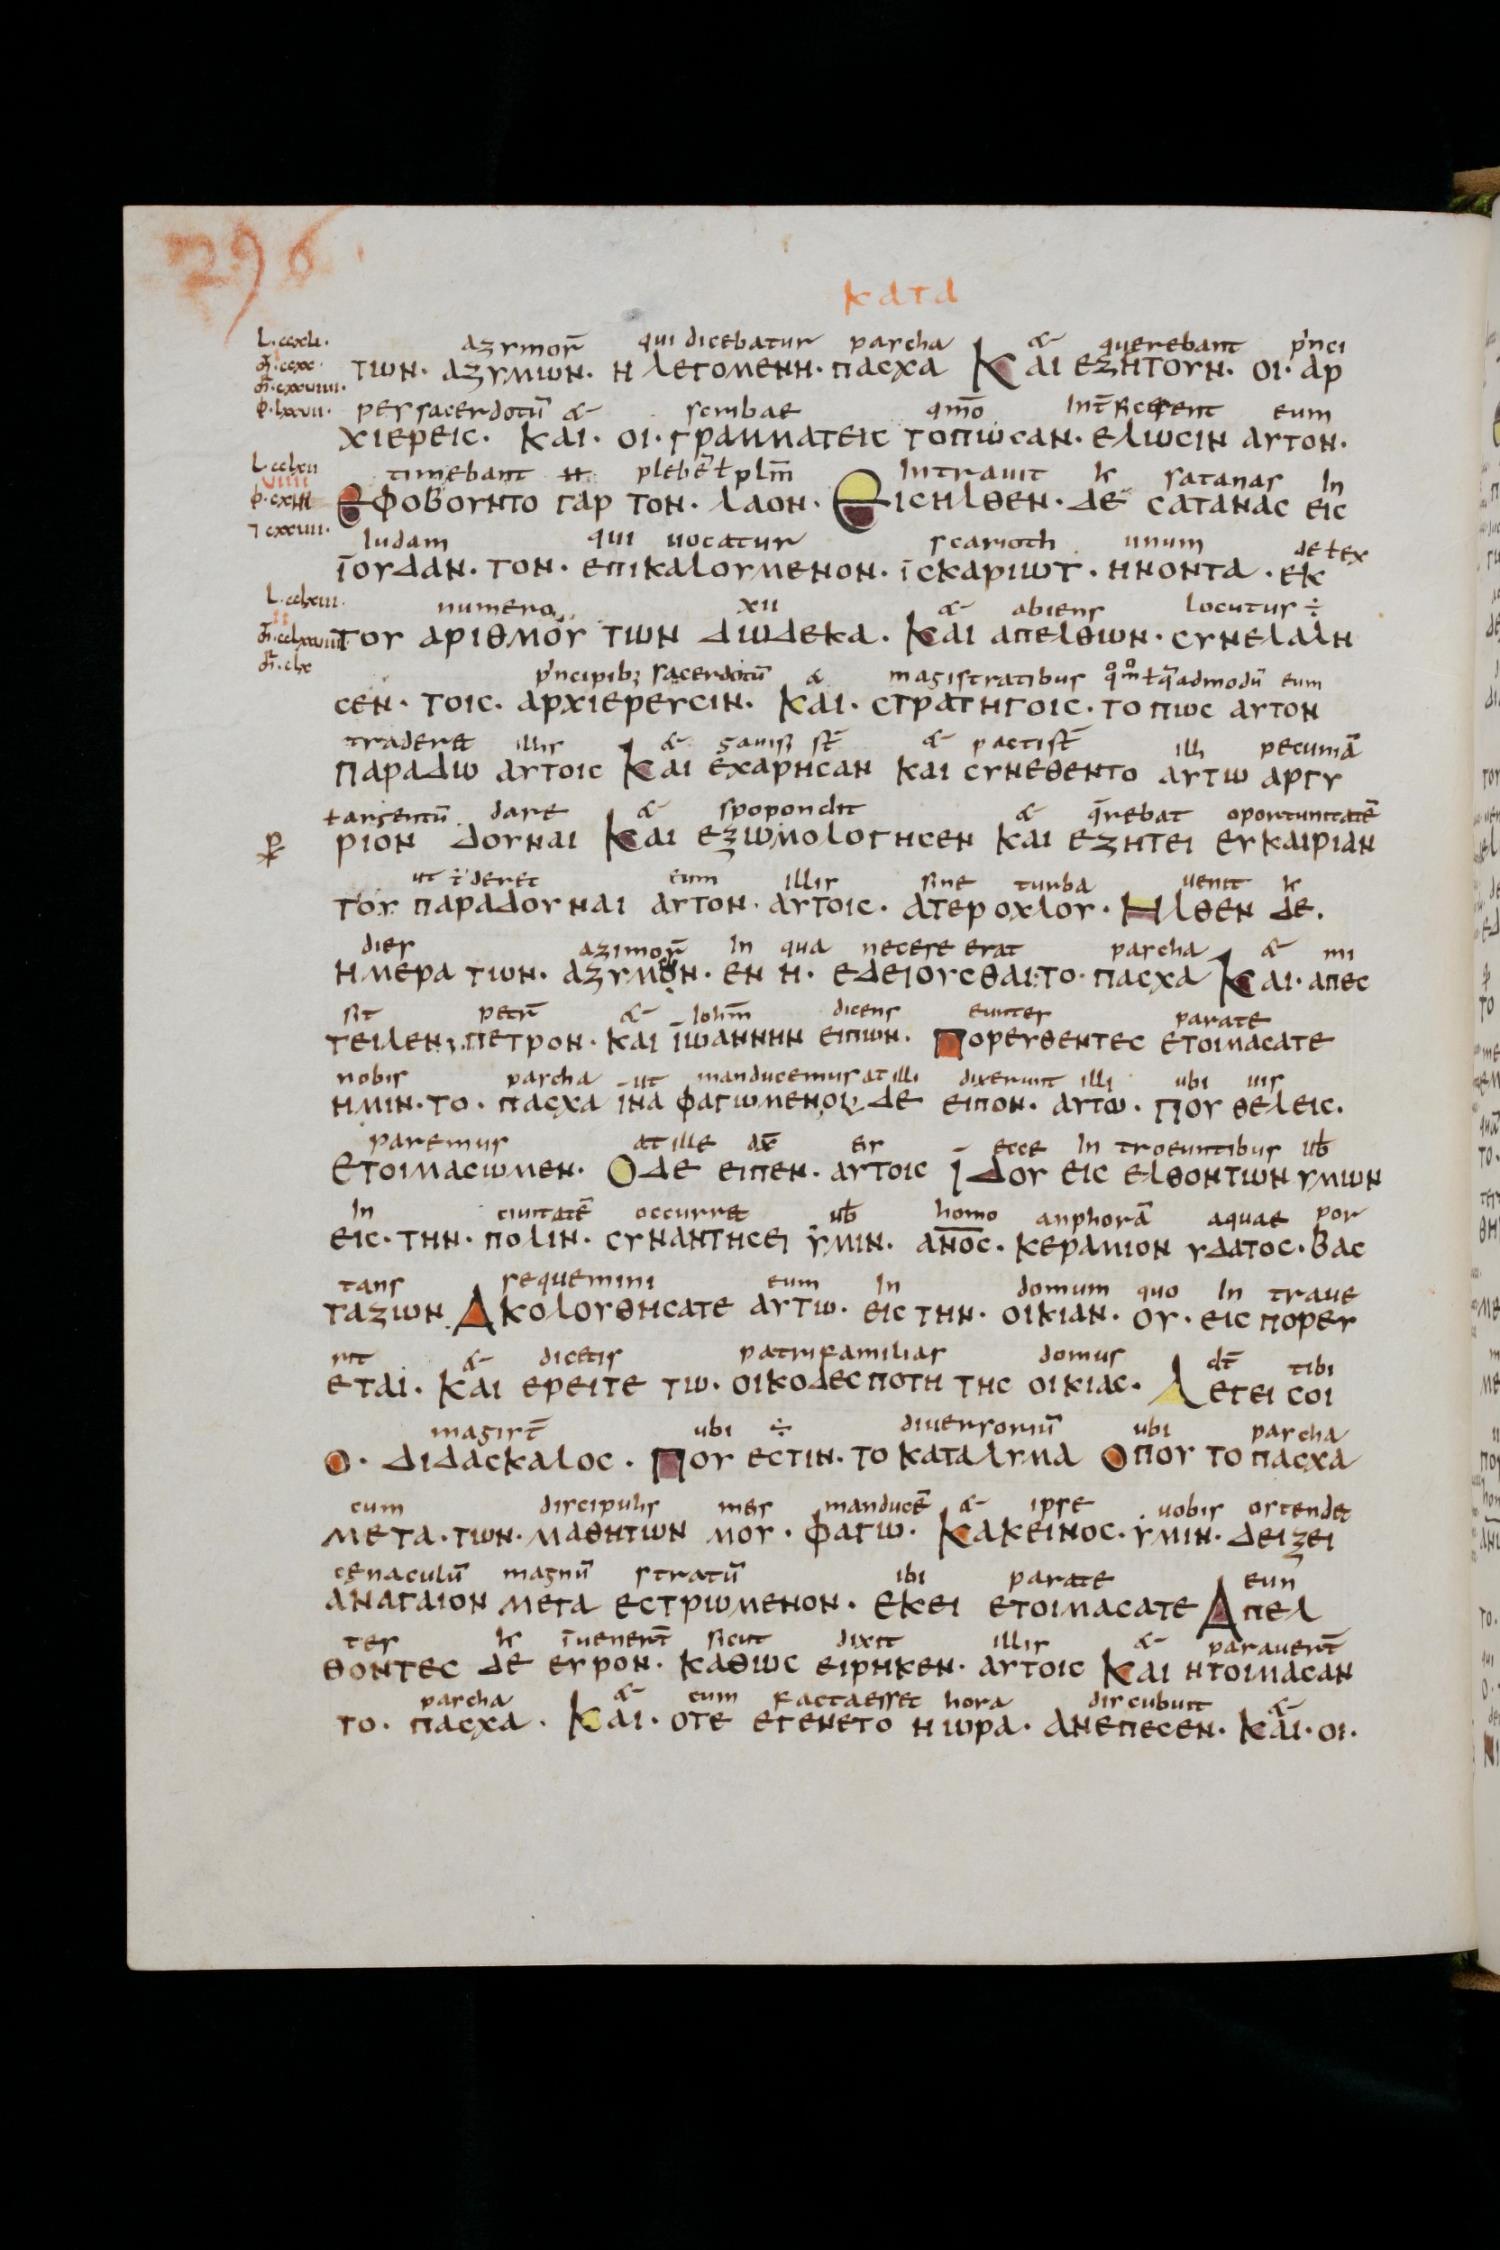 296
κατα
L·ccxli· azymoꝝ qui dicebatur pascha & querebant p'nci
τιων· αζυμιων· η λεγομενη· πασχα Και εζητουν· οι· αρ
pes sacerdotū & scribae qm̄o eum
χιερεις· και· οι· γραμματεις τοπωσαν· ελιωσιν αυτον·
timebant plebē ł plm̄ Intrauit satanas In
Εφοβουντο γαρ τον· λαον· Εισηλθεν· δε σατανας εις
Iudam qui uocatur scarioth unum de ł ex
ϊουδαν· τον· επικαλουμενον· ϊσκαριωτ· ηνοντα· εκ
numero xii & abiens locutus ÷
του αριθμου των διωδεκα· Και απελθιων· συνελαλη
p'ncipib; sacerdotū & magistratibus eum
σεν· τοις· αρχιερευσιν· και· στρατηγοις· το πιος αυτον
traderet illis & gauisi st̄ & pacti st̄ illi pecuniā
παραδω αυτοις Και εχαρησαν και συνεθεντο αυτω αργυ
ł argentū dare & spopondit & q̄rebat oportunitatē
ριον δουναι Και εξωμολογησεν και εζητει ευκαιριαν
ut eum illis sine turba uenit
του παραδουναι αυτον· αυτοις· ατερ οχλου· Ηλθεν δε·
dies azimoꝝ In qua necese erat pascha & mi
ημερα τιων· αζυμον· εν η· εδειουεσθαι· το· πασχα Και· απεσ
sit petr̄ & Iohm̄ dicens euntes parate
τειλεν· πετρον· και ϊωαννην ειπων· Πορευθεντες ετοιμασατε
nobis pascha ut manducemus at illi dixerunt illi ubi uis
ημιν· το· πασχα ϊνα φαγωμενοι δε ειπον· αυτω· Που θελεις·
paremus at ille dx̄ eis ecce In troeuntibus uob̄
Ετοιμασιωμεν· Οδε ειπεν· αυτοις ϊδου εις ελθοντιων υμιων
In ciuitatē occurret uob̄ homo anphorā aquae por
εις· την· πολιν· συναντησει υμιν· αν̅ο̅ς· κεραμιον υδατος· βας
tans sequemini eum In domum quo In traue
ταζιων Ακολουθησατε αυτω· εις την· οικιαν· ου· εις πορευ
rit & dicetis patrifamilias domus dt̄ tibi
εται· και ερειτε τω· οικοδεσποτη της οικιας· Λεγει σοι
magist̄ ubi ÷ diuersoriū ubi pascha
ο· διδασκαλος· Που εστιν· το καταλυμα Οπου το πασχα
cum discipulis meis manducē & ipse uobis ostendet
μετα· των· μαθητιων μου· φαγω· Κακεινος· υμιν· δειξει
cenaculū magnū stratū ibi parate eun
αναγαιον μεγα εστρωμενον· Εκει ετοιμασατε Απελ
tes īuenert̄ sicut dixit illis & parauert̄
θοντες δε ευρον· καθιως ειρηκεν· αυτοις Και ητοιμασαν
pascha & cum facta esset hora discubuit &
το· πασχα· Και· οτε εγενετο η ωρα· ανεπεσεν· Και· οι·